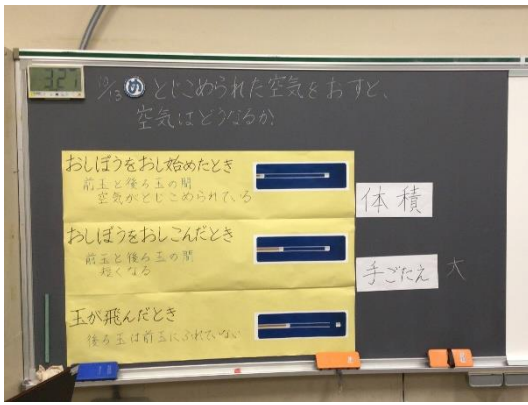 327
10/13 め とじこめられた空気をおすと、
空気はどうなるか。
おしぼうをおし始めたとき
前玉と後ろ玉の間
空気がとじこめられている
体積
おしぼうをおしこんだとき
前玉と後ろ玉の間
短くなる
手ごたえ 大
玉が飛んだとき
後ろ玉は前玉にふれていない